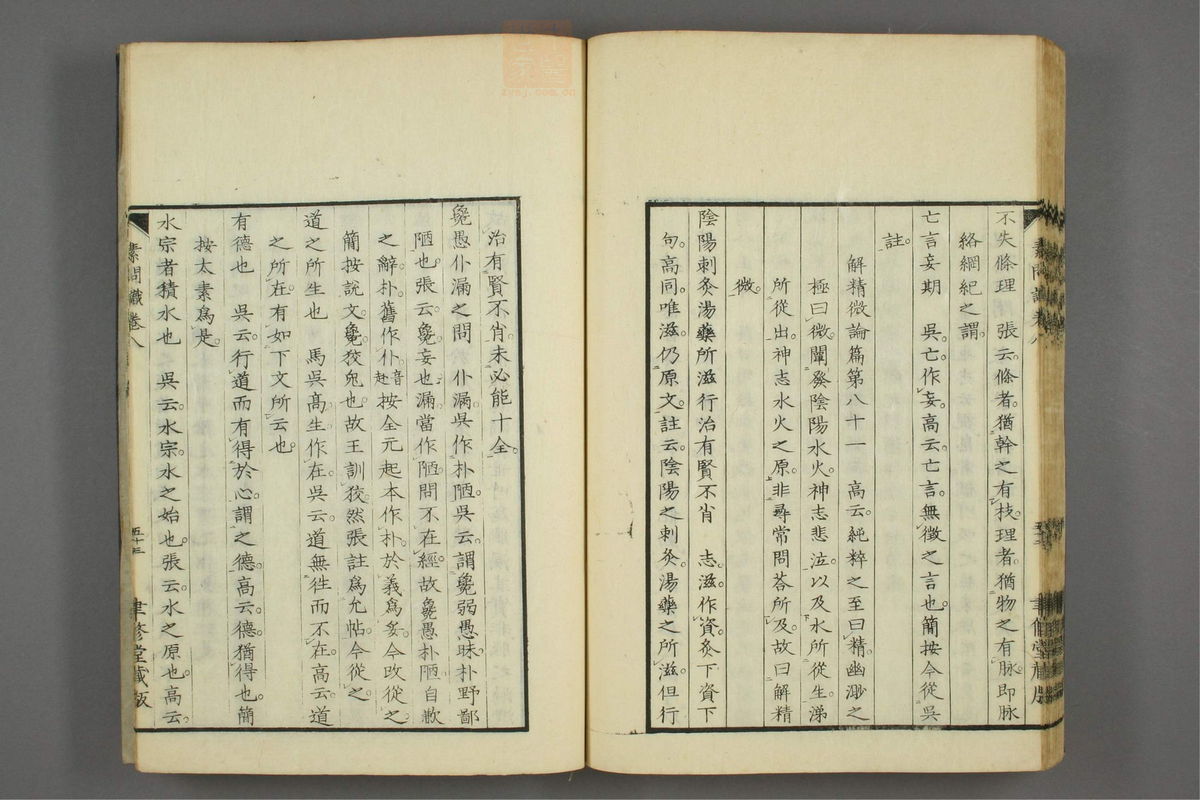 不失條理　張云條者猶幹之有枝理者猶物之有脉即脉
絡綱紀之謂
亡言妄期　吳亡作妄高云亡言無徵之言也簡按今從吳
註
解精微論篇第八十一　高云純粹之至曰精幽渺之
極曰微闡發陰陽水火神志悲泣以及水所從生涕
所從出神志水火之原非尋常問荅所及故曰解精
微
陰陽刺灸湯藥所滋行治有賢不肖　志滋作資灸下資下
句高同唯滋仍原文註云陰陽之刺灸湯藥之所滋但行
治有賢不肖未必能十全
毚愚仆漏之問　仆漏吳作朴陋吳云謂毚弱愚昧朴野鄙
陋也張云毚妄也漏當作陋問不在經故毚愚朴陋自歉
之辭朴舊作仆音赴按全元起本作朴於義爲妥今改從之
簡按說文毚狡兔也故王訓狡然張註爲允帖今從之
道之所生也　馬吳高生作在吳云道無往而不在高云道
之所在有如下文所云也
有德也　吳云行道而有得於心謂之德高云德猶得也簡
按太素爲是
水宗者積水也　吳云水宗水之始也張云水之原也高云
素問識卷八
五十三
聿修堂藏版